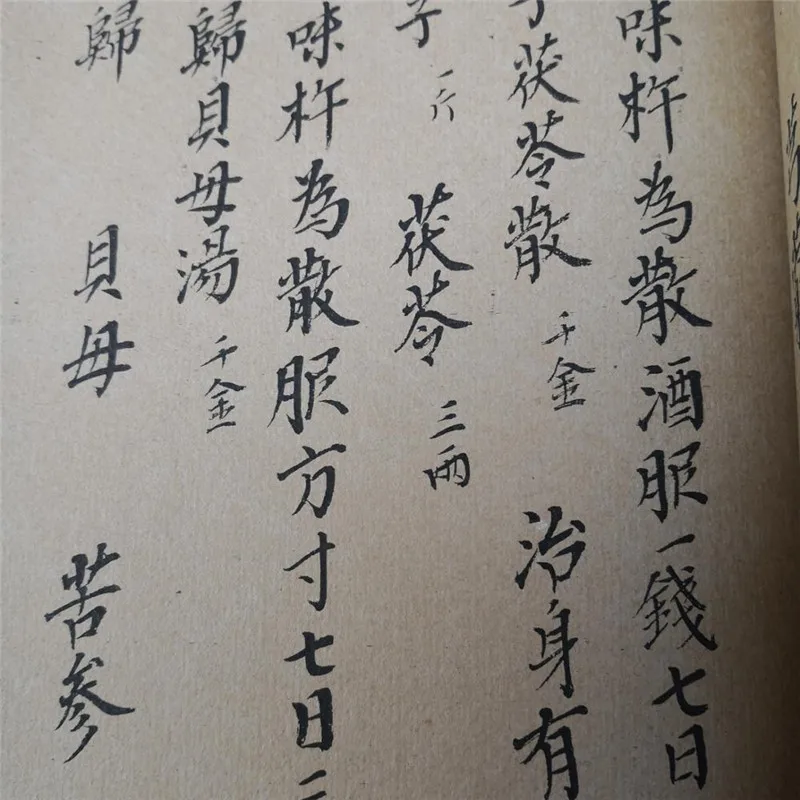 味杵為散酒服一錢七日
子茯苓散 千金 治身有
子 一斤 茯苓 三兩
味杵為散服方寸七日二
歸貝母湯 千金
歸 貝母 苦參